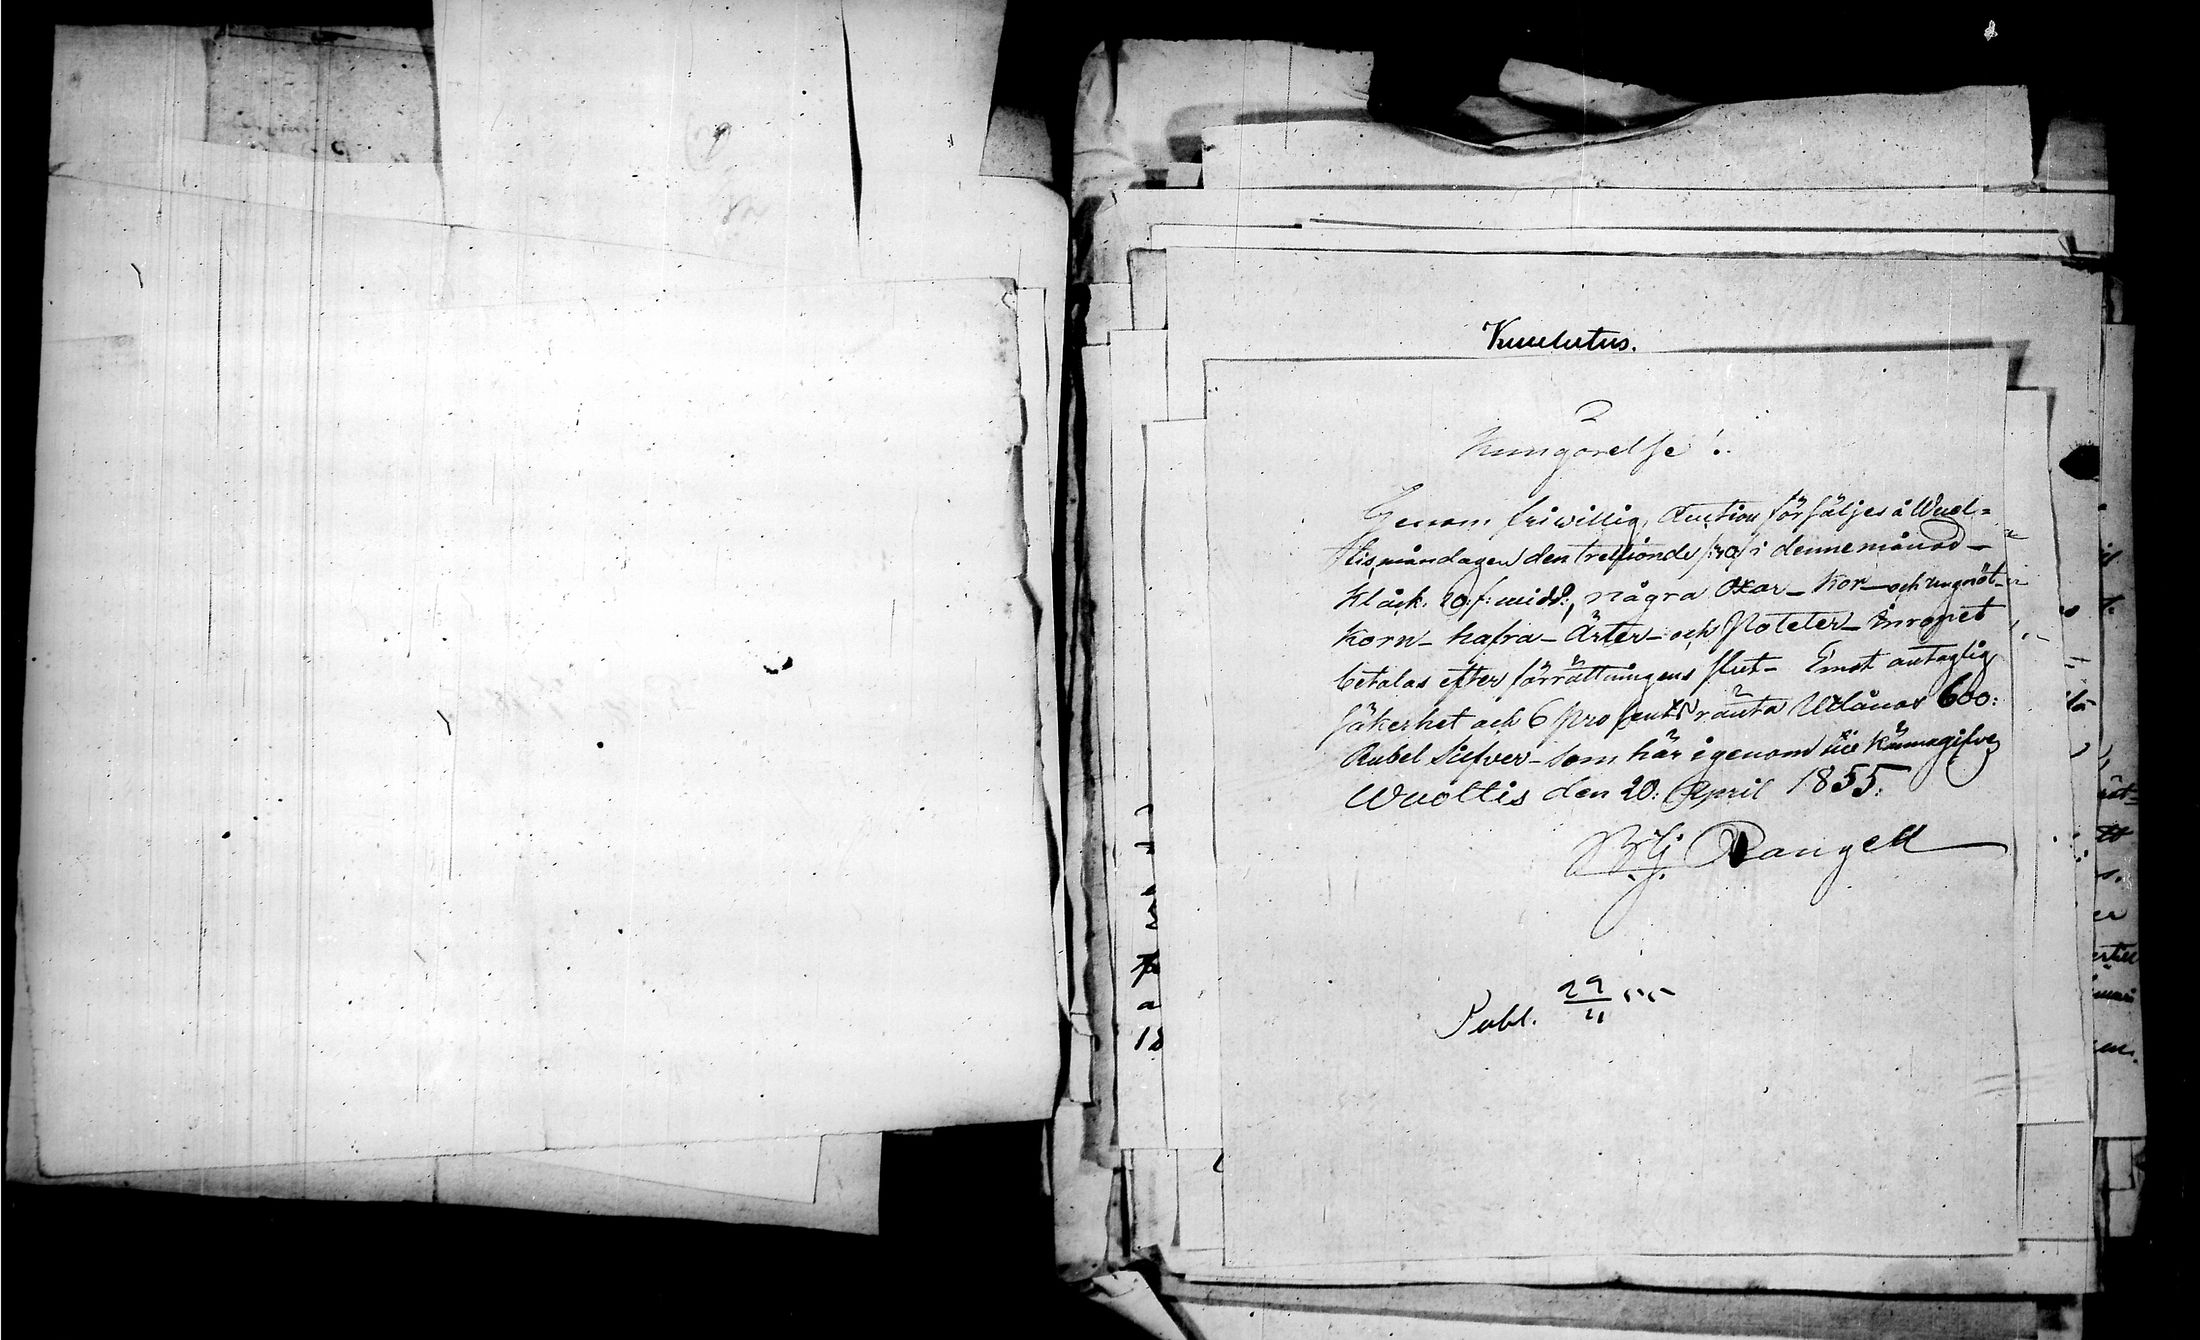 Kuulutus.
Kungörelse!
Genom friwillig Auction försäljes å Wuol-
tis, måndagen den trettionde /:30/ i denne månad –
Klåck. 10. f: midd:, några Oxar – Kor – och ungnöt –
Korn – hafra – Ärter – och Poteter – Inropet
betalas efter förrättningens slut – Emot antaglig
säkerhet och 6 prosents ränta Utlånas 600:
Rubel Silfver – som här igenom till kännagifves
Wuoltis den 20: April 1855:
B. G. Rangell
Publ. 29/4 55